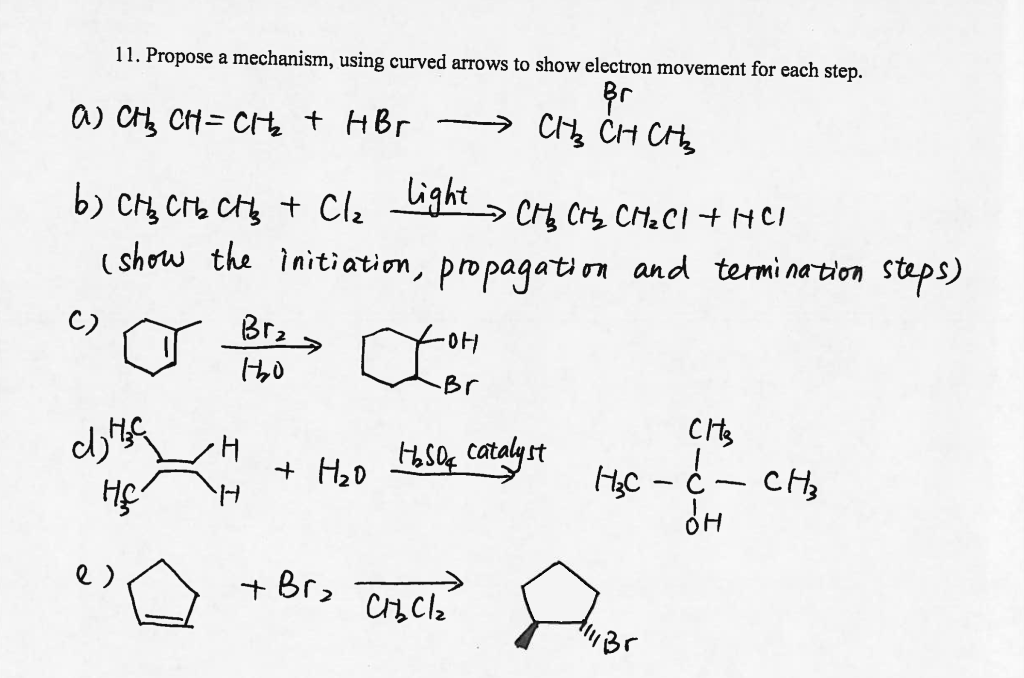 11. Propose a mechanism, using curved arrows to show electron movement for each step.
Br
a) CH3 CH = CH2 + HBr → CH3 CH CH3
b) CH3 CH2 CH3 + Cl2 light → CH3 CH2 CH2Cl + HCl
(show the initiation, propagation and termination steps)
c) Br2 → OH
H2O Br
CH3
d) H3C H + H2O H2SO4 catalyst → H3C - C - CH3
H3C H OH
e) + Br2 → CH2Cl2
Br